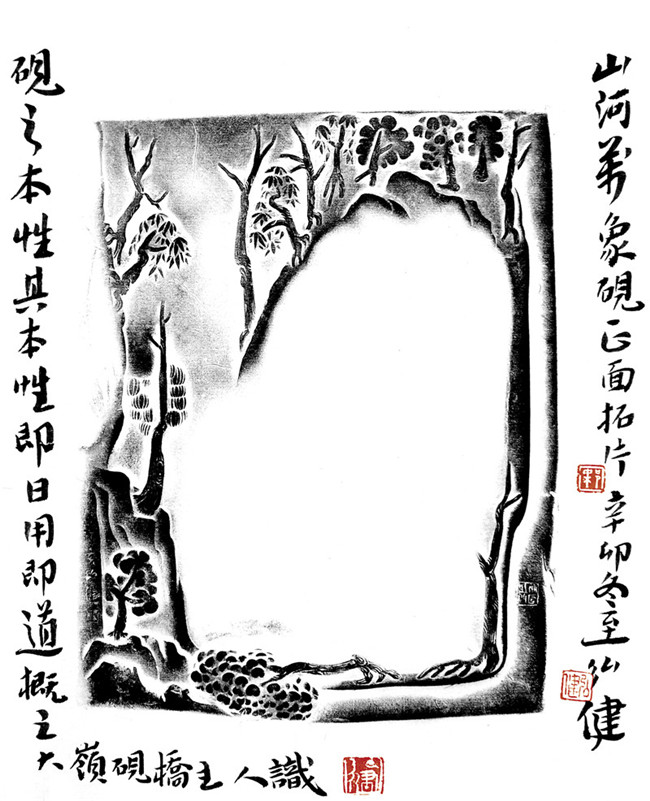 山河萬象硯正面拓片辛卯冬至弘健
硯之本性其本性即日用即道概之大
嶺硯橋主人識